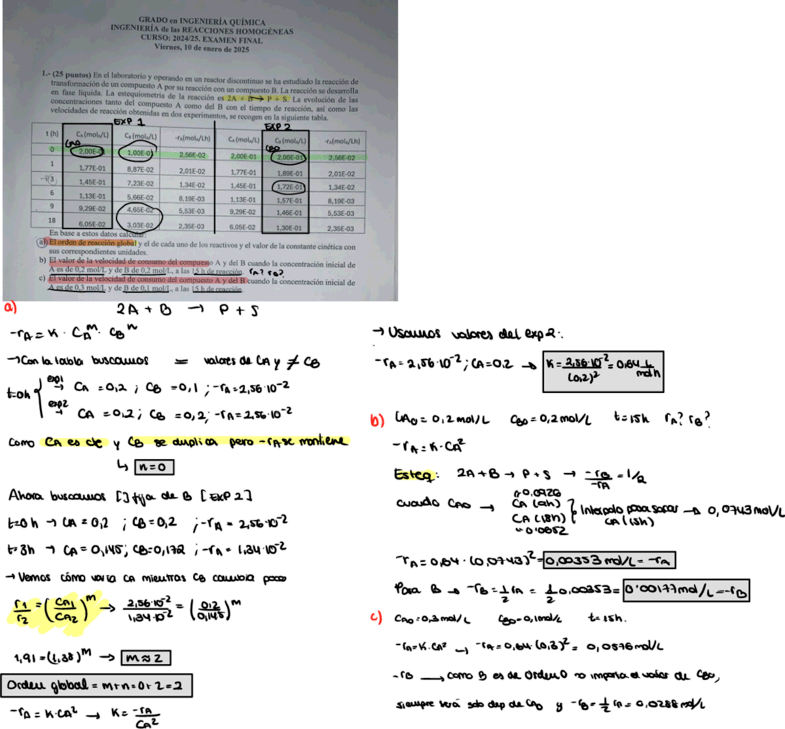 GRADO en INGENIERÍA QUÍMICA
INGENIERÍA de las REACCIONES HOMOGÉNEAS
CURSO: 2024/25. EXAMEN FINAL
Viernes, 10 de enero de 2025
1.- (25 puntos) En el laboratorio y operando en un reactor discontinuo se ha estudiado la reacción de
transformación de un compuesto A por su reacción con un compuesto B. La reacción se desarrolla
en fase líquida. La estequiometría de la reacción es 2A + B → P + S. La evolución de las
concentraciones tanto del compuesto A como del B con el tiempo de reacción, así como las
velocidades de reacción obtenidas en dos experimentos, se recogen en la siguiente tabla.
EXP 1 EXP 2
t (h) CA (molA/L) CB (molB/L) -rA(molA/Lh) CA (molA/L) CB (molB/L) -rA(molA/Lh)
CAO CBO
0 2,00E-01 1,00E-01 2,56E-02 2,00E-01 2,00E-01 2,56E-02
1 1,77E-01 8,87E-02 2,01E-02 1,77E-01 1,89E-01 2,01E-02
3 1,45E-01 7,23E-02 1,34E-02 1,45E-01 1,72E-01 1,34E-02
6 1,13E-01 5,66E-02 8,19E-03 1,13E-01 1,57E-01 8,19E-03
9 9,29E-02 4,65E-02 5,53E-03 9,29E-02 1,46E-01 5,53E-03
18 6,05E-02 3,03E-02 2,35E-03 6,05E-02 1,30E-01 2,35E-03
En base a estos datos calcular:
a) El orden de reacción global y el de cada uno de los reactivos y el valor de la constante cinética con
sus correspondientes unidades.
b) El valor de la velocidad de consumo del compuesto A y del B cuando la concentración inicial de
A es de 0,2 mol/L y de B de 0,2 mol/L, a las 15 h de reacción. rA? rB?
c) El valor de la velocidad de consumo del compuesto A y del B cuando la concentración inicial de
A es de 0,3 mol/L y de B de 0,1 mol/L, a las 15 h de reacción.
a) 2A + B → P + S
-rA = K · CA^m · CB^n
→ Con la tabla buscamos = valores de CA y ≠ CB
t=0h exp1 → CA = 0,2 ; CB = 0,1 ; -rA = 2,56·10-2
exp2 → CA = 0,2 ; CB = 0,2 ; -rA = 2,56·10-2
Como CA es cte y CB se duplica pero -rA se mantiene
↳ n=0
Ahora buscamos [] fija de B [EXP 2]
t=0h → CA = 0,2 ; CB = 0,2 ; -rA = 2,56·10-2
t=3h → CA = 0,145 ; CB=0,172 ; -rA = 1,34·10-2
→ Vemos cómo varia CA mientras CB cambia poco
r1/r2 = (CA1/CA2)^m → 2,56·10-2/1,34·10-2 = (0,2/0,145)^m
1,91 = (1,38)^m → m ≈ 2
Orden global = m+n = 0+2 = 2
-rA = K·CA² → K = -rA/CA²
→ Usamos valores del exp 2:
-rA = 2,56·10-2 ; CA=0,2 → K = 2,56·10-2/(0,2)² = 0,64 L/mol h
b) CAO = 0,2 mol/L CBO = 0,2 mol/L t = 15h rA? rB?
-rA = K·CA²
Esteq: 2A + B → P + S → -rB/-rA = 1/2
cuando CAO → CA (9h) ≈0,0929
CA (18h) ≈0,0652
Interpolo para sacar CA (15h) → 0,0743 mol/L
-rA = 0,64 · (0,0743)² = 0,00353 mol/L = -rA
Para B → -rB = 1/2 rA = 1/2 0,00353 = 0'00177 mol/L = -rB
c) CAO = 0,3 mol/L CBO = 0,1 mol/L t = 15h.
-rA = K·CA² → -rA = 0,64 · (0,3)² = 0,0576 mol/L
-rB → como B es de orden 0 no importa el valor de CBO,
siempre será solo dep de CAO y -rB = 1/2 rA = 0,0288 mol/L